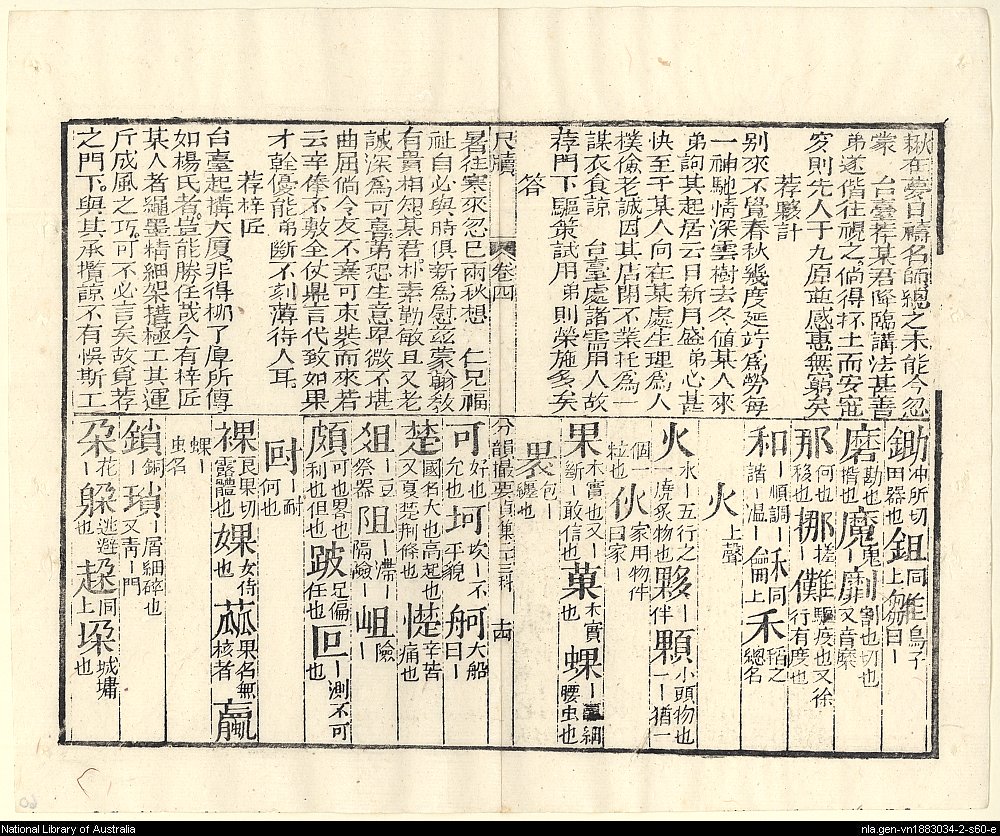 楸在夢日禱名師總之未能今忽
蒙　台臺荐某君降臨講法甚善
弟遂偕往視之倘得抔土而安窀
穸則先人于九原並感惠無窮矣
荐夥計
別來不覺春秋幾度延竚爲勞每
一神馳情深雲樹去冬值某人來
弟詢其起居云日新月盛弟心甚
快至于某人向在某處生理爲人
樸儉老誠因其店閉不業托爲一
謀衣食諒　台臺處諸需用人故
荐門下驅策試用弟則榮施多矣
答
尺牘　卷四
暑往寒來忽已兩秋想　仁兄福
祉自必與時俱新爲慰茲蒙翰教
有貴相知某君朴素勤敏且又老
誠深爲可喜第恐生意卑微不堪
曲屈倘令友不棄可束裝而來若
云辛俸不敷全仗鼎言代致如果
才幹優能弟斷不刻薄待人耳
荐梓匠
台臺起搆大廈非得柳了厚所傳
如楊氏者豈能勝任哉今有梓匠
某人者繩墨精細架措極工其運
斤成風之巧可不必言矣故覓荐
之門下與其承攬諒不有悞斯工
鋤 冲所切田器也 鉏 同上 㘝 能鳥子曰丨
磨 勘也揩也 魔 丨鬼 劘 割也切也又音縻
那 何也移也 挪 搓丨 難 驅疫也又徐 儺 行有度也
和 丨順調丨諧丨温 龢 同上 禾 稻之總名
火 上聲
火 水丨五行之一燒炙物也 夥 丨伴 顆 小頭物也一丨猶一
個一粒也 伙 家用物件曰家丨
果 木實也又斷丨敢信也 菓 木實也 蜾 丨蠃細腰虫也
裹 包丨纏也
分韻撮要貞集三十三科　十四
可 好也允也 坷 坎丨不平貌 舸 大船曰丨
楚 國名大也高起也又夏楚荆條也 憷 辛苦痛也
俎 丨豆祭器 阻 丨滯隔險 岨 丨險
頗 可也畧也丨利也但也 跛 足偏任也 叵 丨測不可也
𠷃 丨耐何也
裸 艮果切露體也 婐 女侍也 蓏 果名無核者 蠃
蜾丨虫名
鎖 銅丨 瑣 丨屑細碎也又靑丨門
朶 花丨 躱 逃避也 趓 同上 垜 城墉也
National Library of Australia
nla.gen-vn1883034-2-s60-e